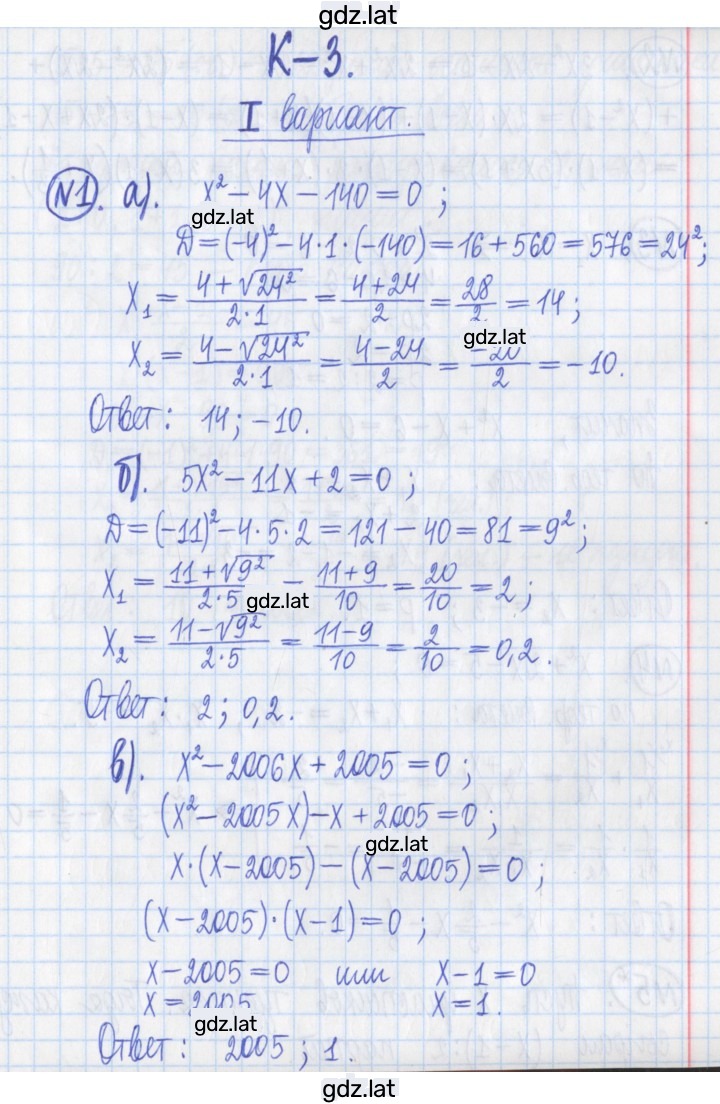 gdz.lat
К-3.
I вариант.
№1. а). x² - 4x - 140 = 0 ;
gdz.lat
D = (-4)² - 4·1·(-140) = 16 + 560 = 576 = 24²;
x₁ = (4 + √24²)/(2·1) = (4 + 24)/2 = 28/2 = 14 ;
gdz.lat
x₂ = (4 - √24²)/(2·1) = (4 - 24)/2 = -20/2 = -10.
Ответ: 14 ; -10.
б). 5x² - 11x + 2 = 0 ;
D = (-11)² - 4·5·2 = 121 - 40 = 81 = 9² ;
x₁ = (11 + √9²)/(2·5) - (11 + 9)/10 = 20/10 = 2 ;
gdz.lat
x₂ = (11 - √9²)/(2·5) = (11 - 9)/10 = 2/10 = 0,2.
Ответ: 2 ; 0,2.
в). x² - 2006x + 2005 = 0 ;
(x² - 2005x) - x + 2005 = 0 ;
gdz.lat
x·(x - 2005) - (x - 2005) = 0 ;
(x - 2005)·(x - 1) = 0 ;
x - 2005 = 0 или x - 1 = 0
x = 2005 x = 1.
gdz.lat
Ответ: 2005 ; 1.
gdz.lat